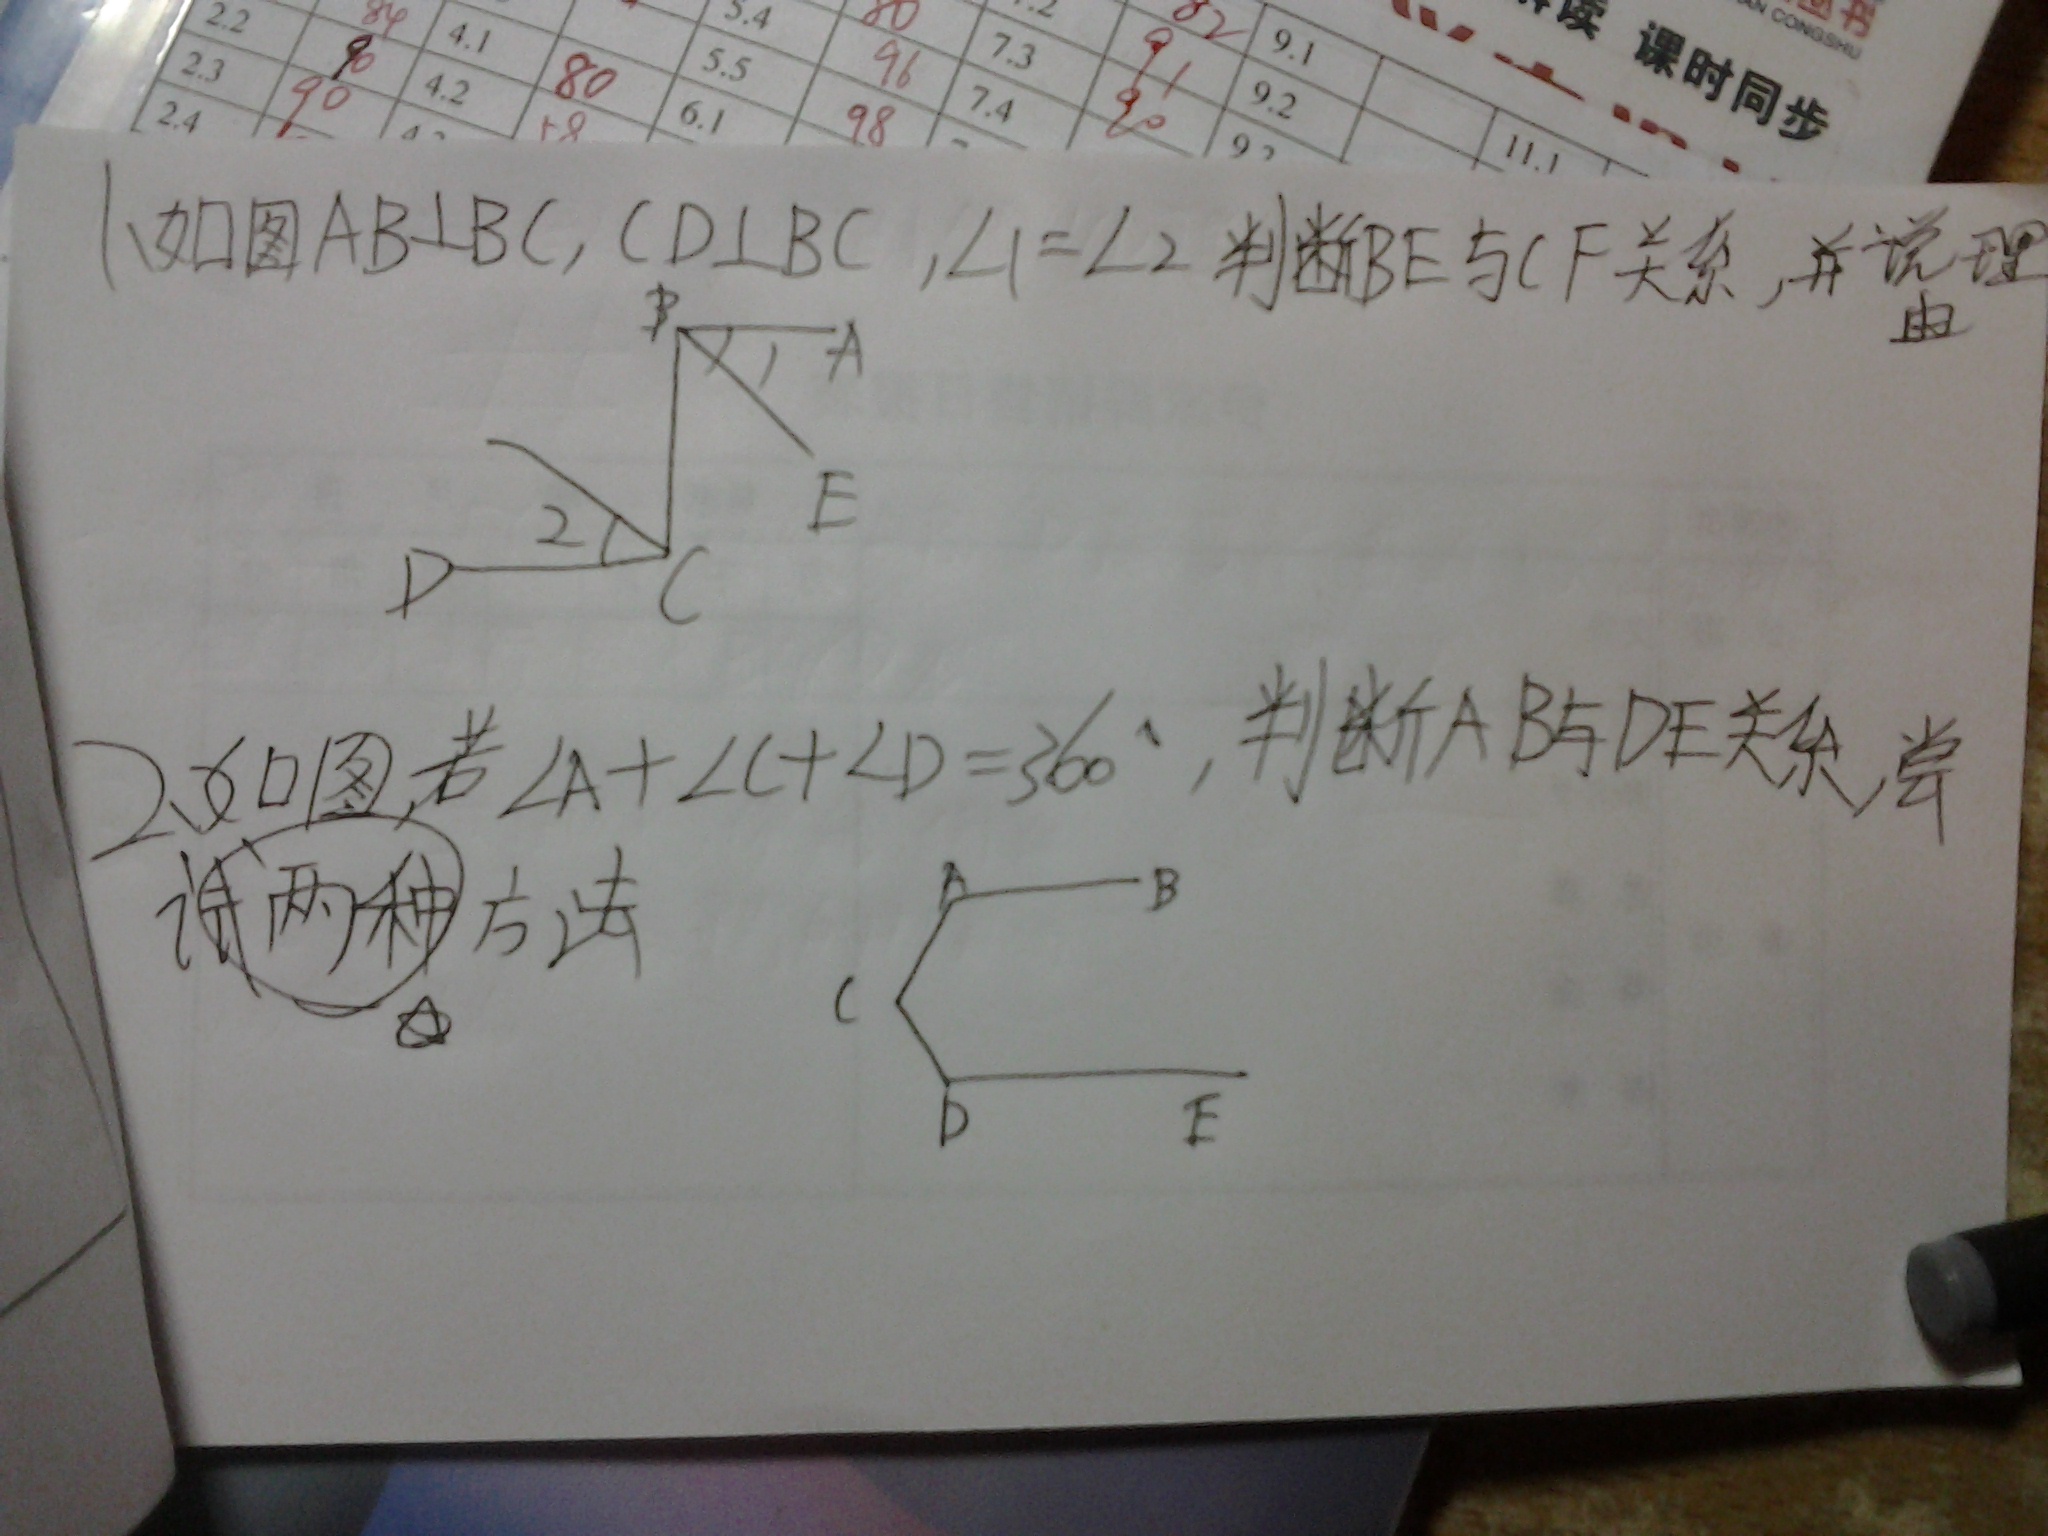 解读 课时同步
AN CONGSHU
丛书
2.2 84 4.1 5.4 80 7.3 82 9.1
2.3 90 4.2 80 5.5 96 7.4 91 9.2
2.4 90 6.1 98 90 11.1
1、如图AB⊥BC, CD⊥BC, ∠1=∠2 判断BE与CF关系,并说理
由
B A
1
E
2
D C
2、如图,若∠A+∠C+∠D=360°,判断AB与DE关系,尝
试两种方法
A B
C
D E